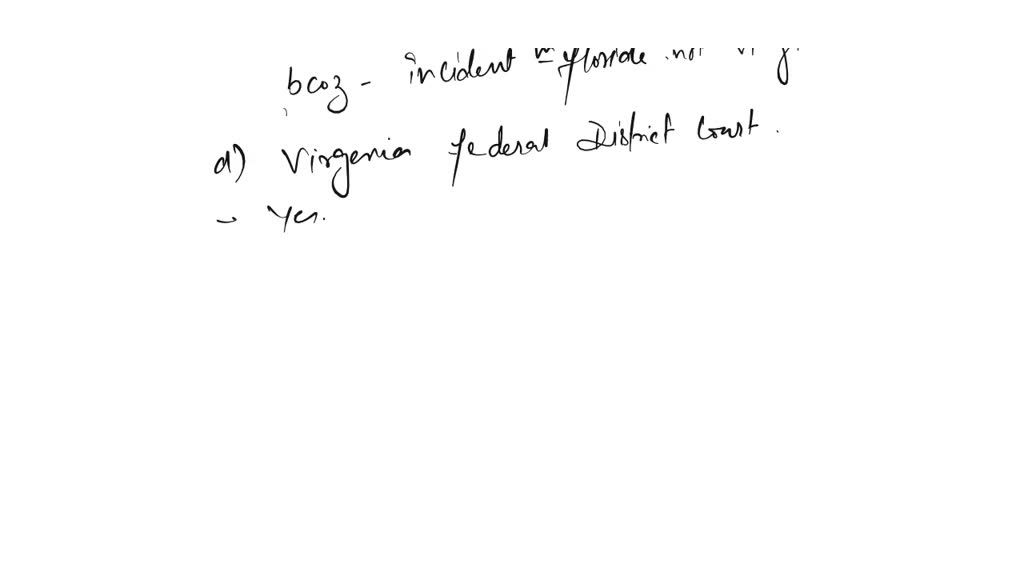 bcoz - incident in floride not
d) Virgenia federal District Court.
- Yes.